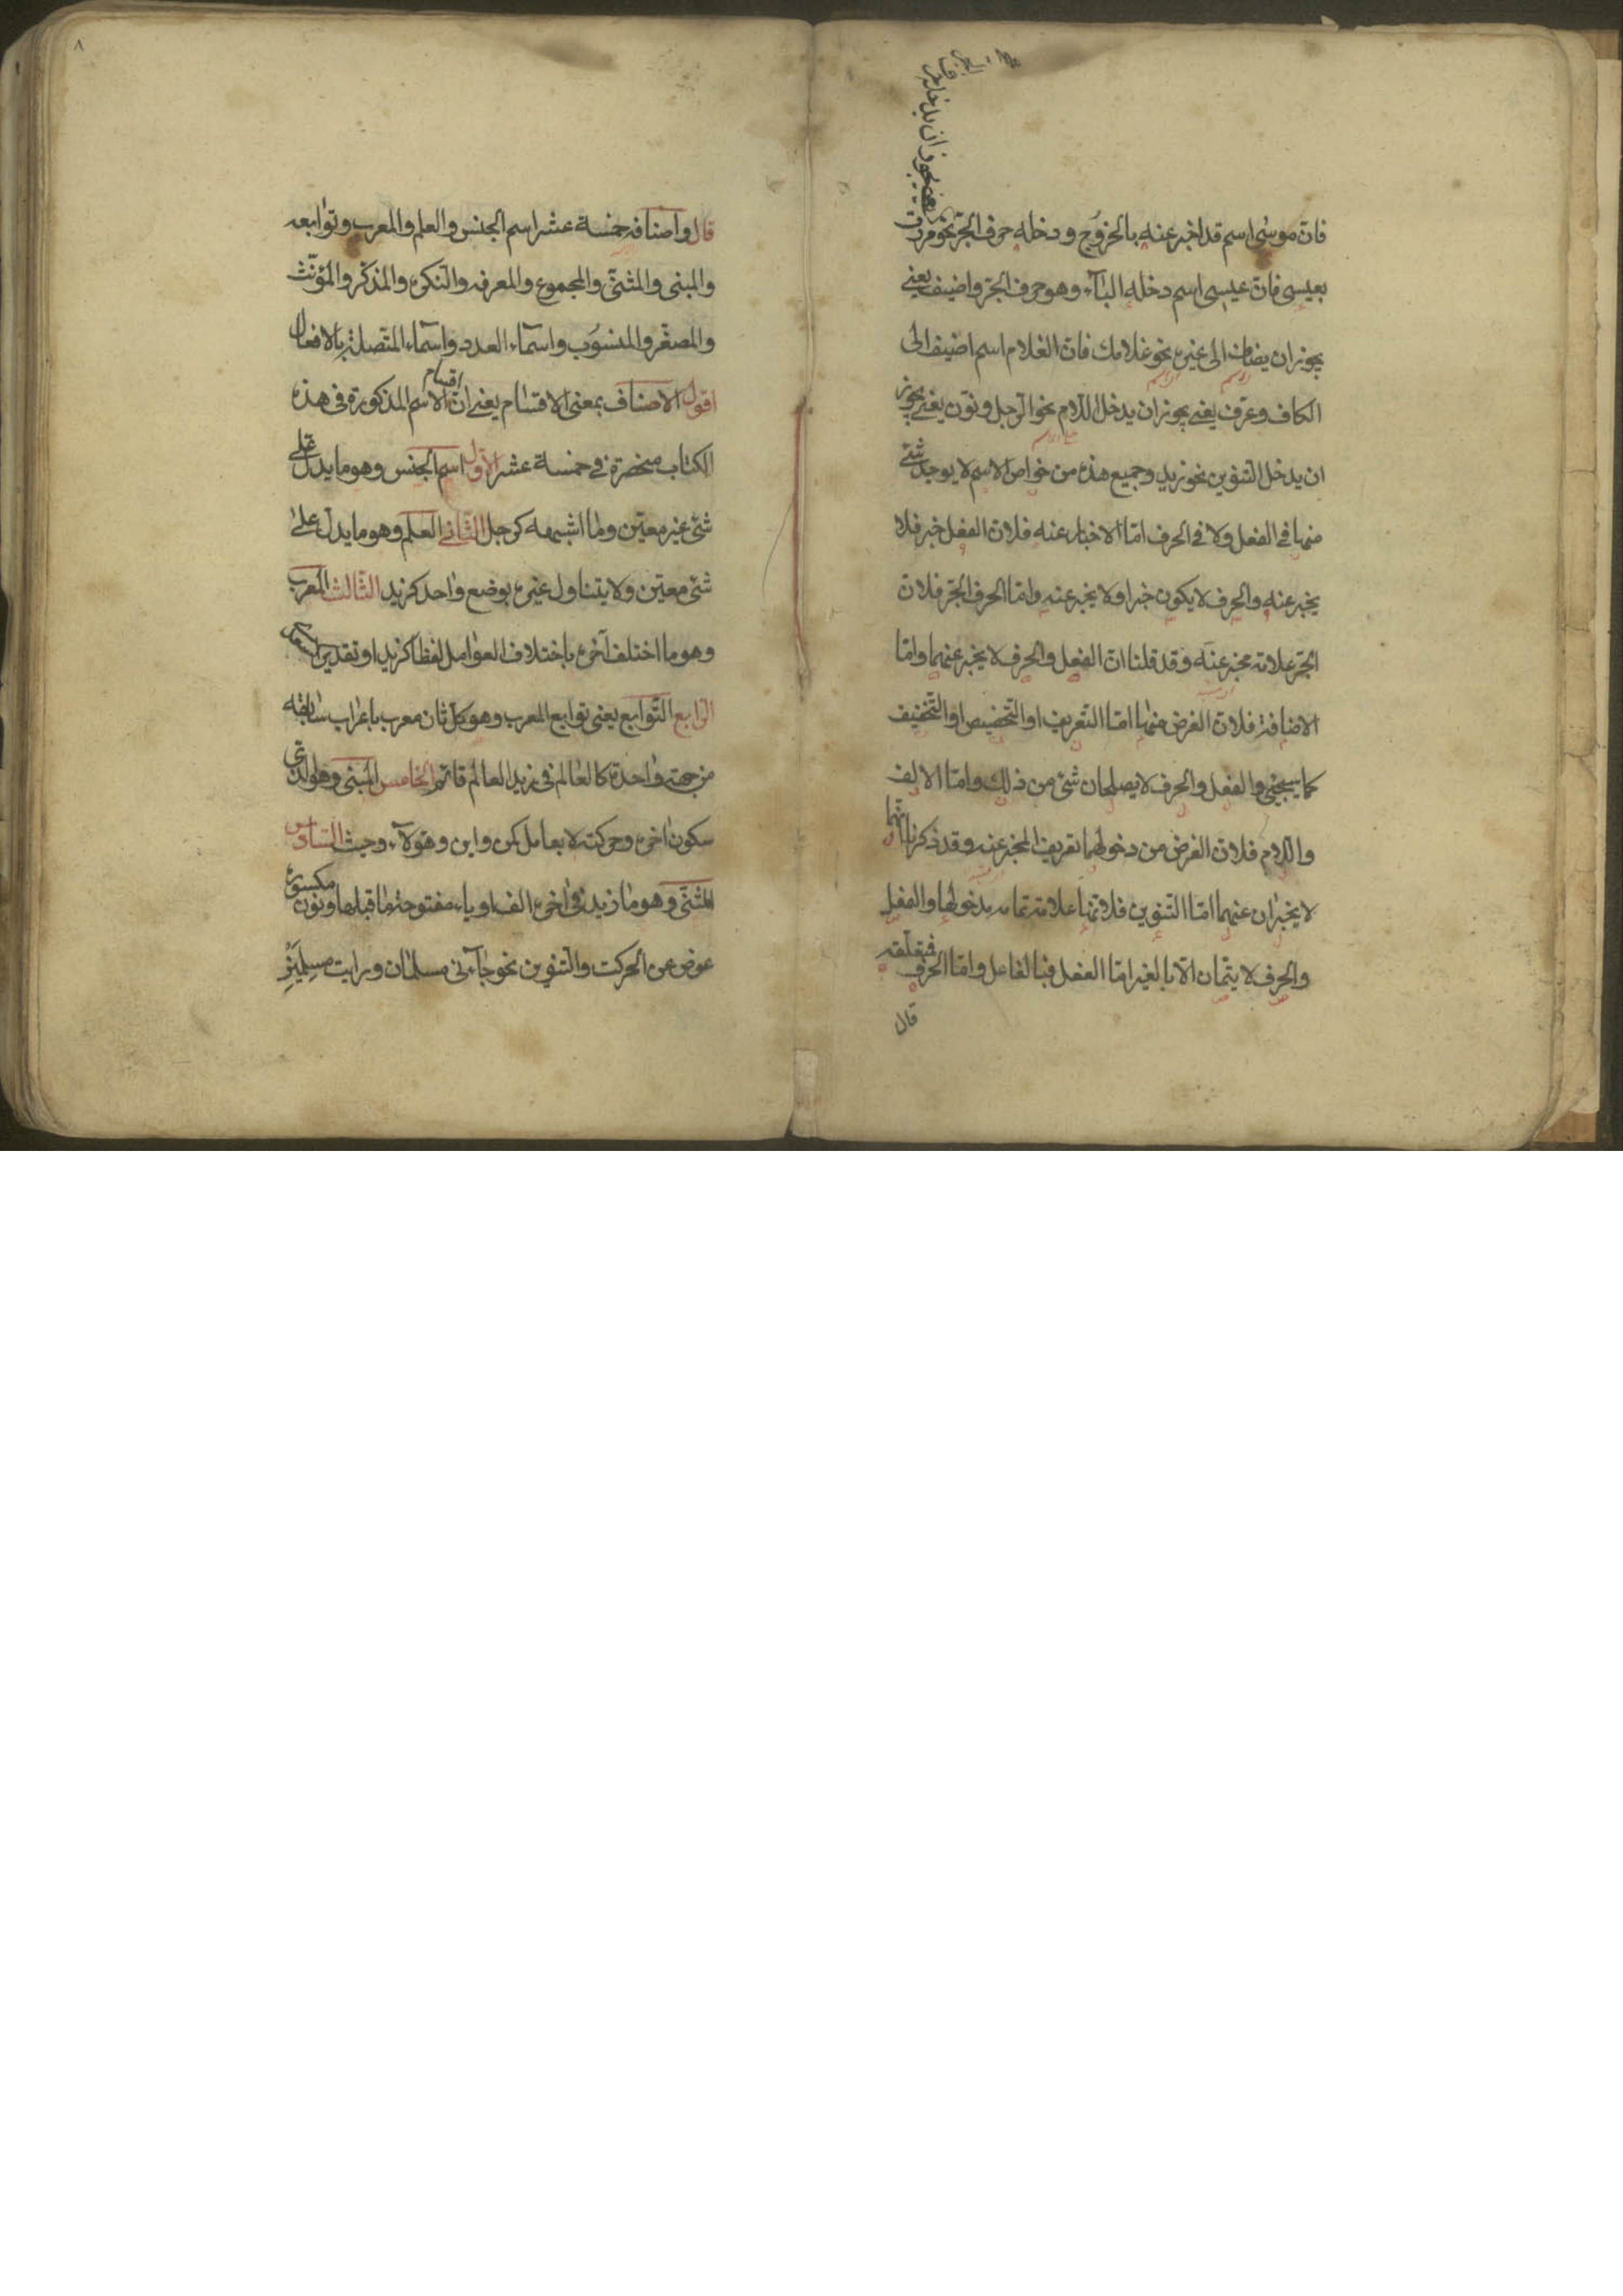 فانّ موسٰى اسم قد اخبر عنه بالخروج ودخله حرف الجرّ نحو مررت
بعيسى فانّ عيسى اسم دخله البآء وهو حرف الجرّ واضيف يعني
يجوز ان يضاف الى غيره نحو غلامك فانّ الغلام اسم اضيف الى
الكاف وعرّف يعني يجوز ان يدخل اللام نحو الرّجل ونوّن يعني يجوز
ان يدخل التنوين نحو زيد وجميع هذه من خواص الاسم لا يوجد شئ
منها في الفعل ولا في الحرف امّا الاخبار عنه فلانّ الفعل خبر فلا
يخبر عنه والحرف لا يكون خبرا ولا يخبر عنه وامّا الحرف الجرّ فلانّ
الجرّ علامة مخبر عنه وقد قلنا انّ الفعل والحرف لا يخبر عنهما وامّا
الاضافة فلانّ الغرض منها امّا التّعريف او التّخصيص او التّخفيف
كما سيجئ والفعل والحرف لا يصلحان شئ من ذلك وامّا الالف
واللام فلانّ الغرض من دخولهما تعريف المخبر عنه وقد ذكرنا انّهما
لا يخبران عنهما امّا التّنوين فلانّها علامة تمام مدخولها والفعل
والحرف لا يتمّان الّا بالغير امّا الفعل فبالفاعل وامّا الحرف فبمتعلّقه
قال
قال واصنافه خمسة عشر اسم الجنس والعلم والمعرب وتوابعه
والمبنى والمثنّى والمجموع والمعرفه والنّكره والمذكّر والمؤنّث
والمصغّر والمنسوب واسمآء العدد واسمآء المتّصلة بالافعال
اقول الاصناف بمعنى الاقسام يعنى انّ اقسام الاسم المذكورة فى هذه
الكتاب منحصرة في خمسة عشر الاوّل اسم الجنس وهو ما يدلّ على
شئ غير معيّن وما اشبهه كرجل الثّاني العلم وهو ما يدلّ على
شئ معيّن ولا يتناول غيره بوضع واحد كزيد الثّالث المعرب
وهو ما اختلف آخره باختلاف العوامل لفظا كزيد او تقديرا
الرّابع التّوابع يعنى توابع المعرب وهو كلّ ثان معرب باعراب سابقه
من جهة واحدة كالعالم فى زيد العالم قائم الخامس المبنى وهو الّذى
سكون اخره وحركته لا بعامل كمن واين وهؤلآء وحيث السّادس
المثنّى وهو ما زيد فى اخره الف او ياء مفتوحة ما قبلها ونون مكسورة
عوض عن الحركت والتّنوين نحو جآءنى مسلمان ورايت مسلمَينِ